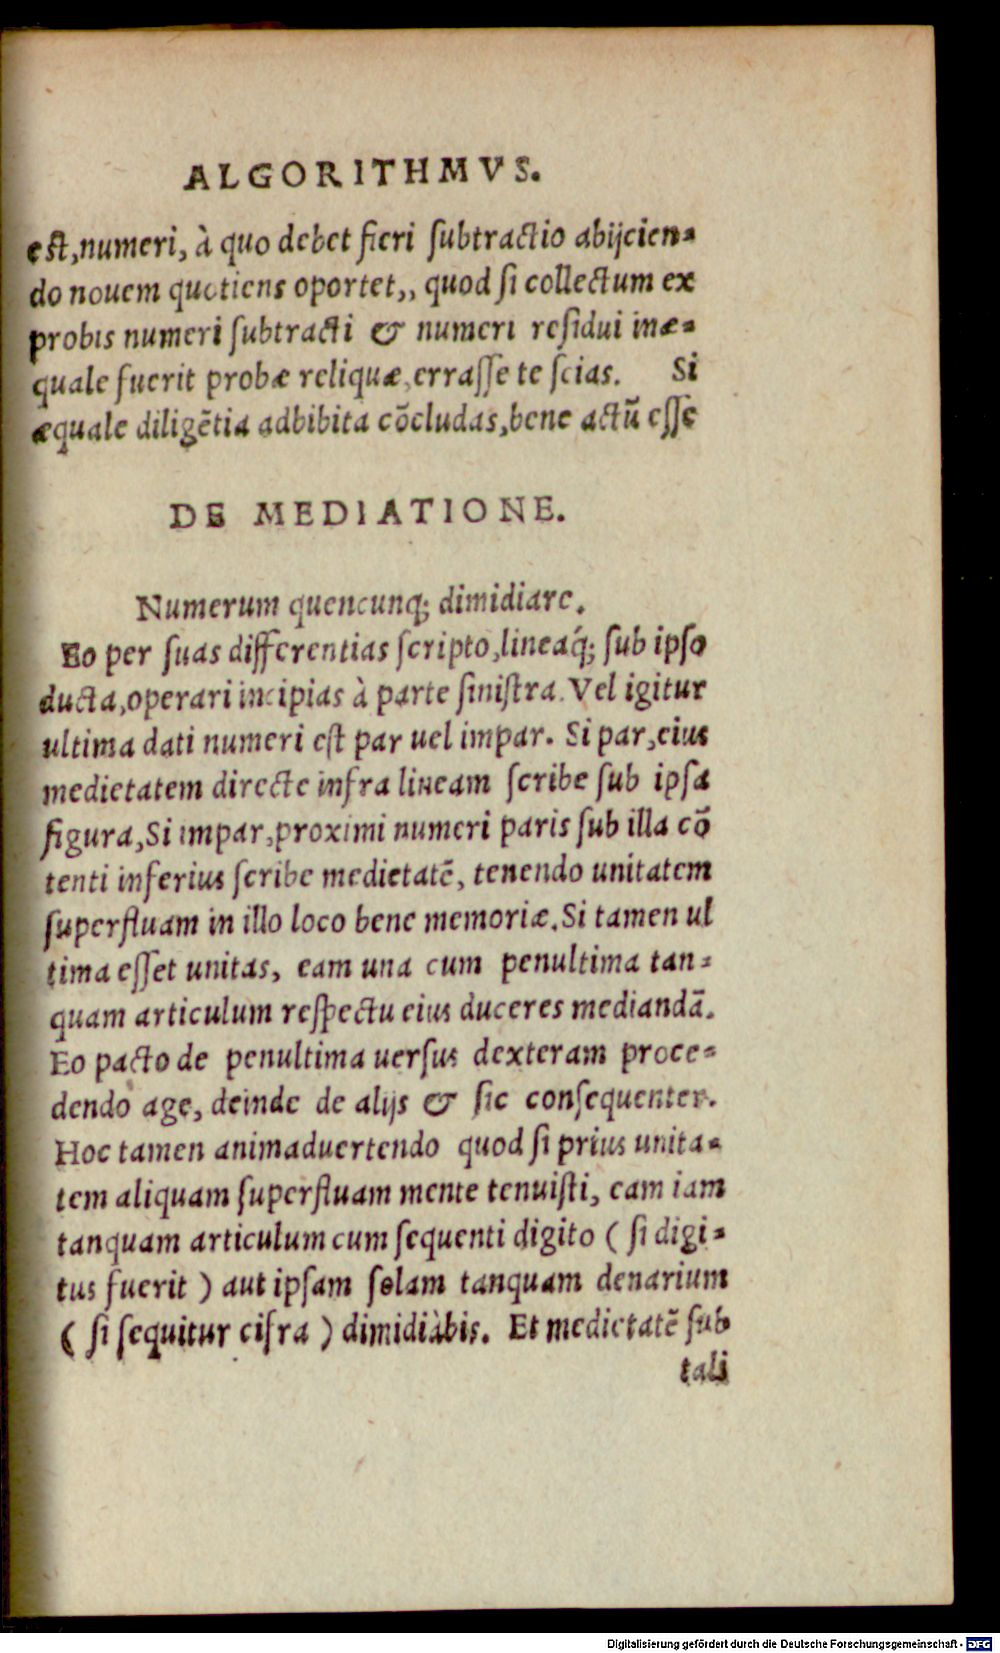 ALGORITHMVS.
est, numeri, à quo debet fieri ſubtractio abijcien-
do nouem quotiens oportet,, quod ſi collectum ex
probis numeri ſubtracti & numeri reſidui inæ-
quale fuerit probæ reliquæ, erraſſe te ſcias. Si
æquale diligẽtia adbibita cõcludas, bene actũ eſſe
DE MEDIATIONE.
Numerum quencunq; dimidiare.
Eo per ſuas differentias ſcripto, lineaq́; ſub ipſo
ducta, operari incipias à parte ſiniſtra. Vel igitur
ultima dati numeri eſt par uel impar. Si par, eius
medietatem directe infra lineam ſcribe ſub ipſa
figura, Si impar, proximi numeri paris ſub illa cõ
tenti inferius ſcribe medietatẽ, tenendo unitatem
ſuperfluam in illo loco bene memoriæ. Si tamen ul
tima eſſet unitas, eam una cum penultima tan-
quam articulum reſpectu eius duceres mediandã.
Eo pacto de penultima uerſus dexteram proce-
dendo age, deinde de alijs & ſic conſequenter.
Hoc tamen animaduertendo quod ſi prius unita-
tem aliquam ſuperfluam mente tenuiſti, eam iam
tanquam articulum cum ſequenti digito ( ſi digi-
tus fuerit ) aut ipſam ſolam tanquam denarium
( ſi ſequitur cifra ) dimidiàbis. Et medietatẽ ſub
tali
Digitalisierung gefördert durch die Deutsche Forschungsgemeinschaft - DFG